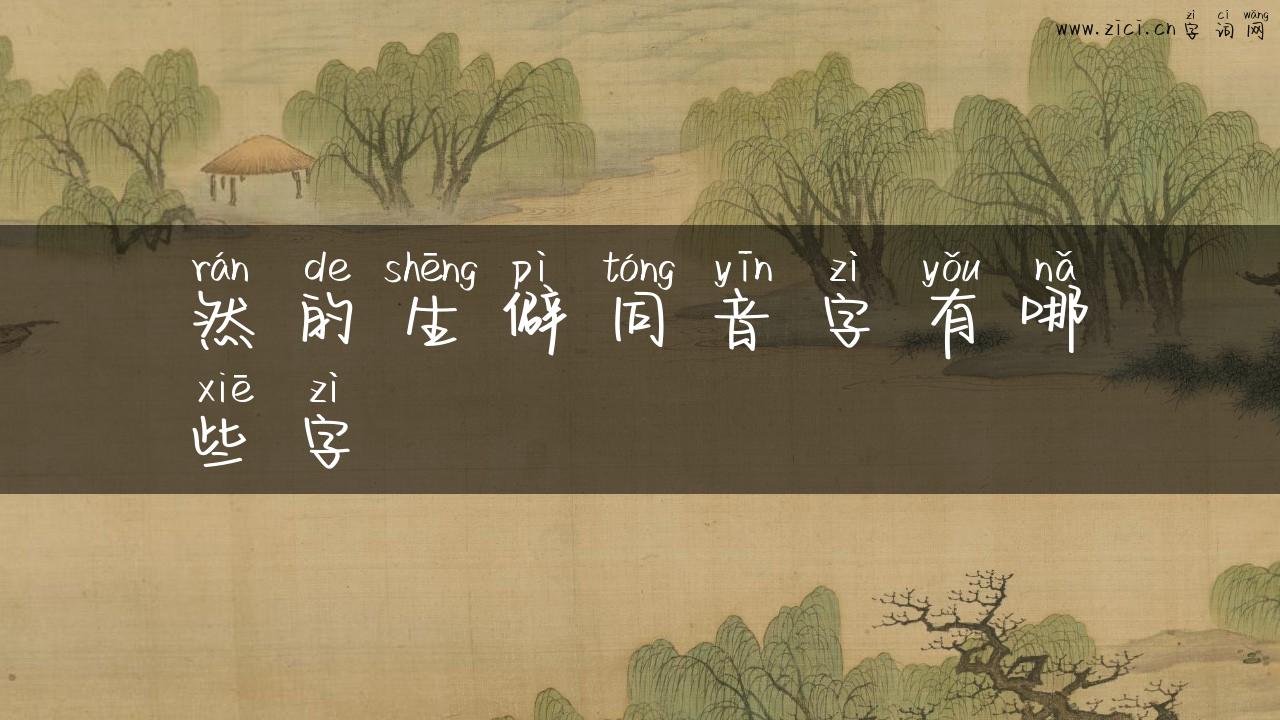 zì cí wǎng
www.zici.cn 字 词 网
rán de shēng pì tóng yīn zì yǒu nǎ
然 的 生 僻 同 音 字 有 哪
xiē zì
些 字